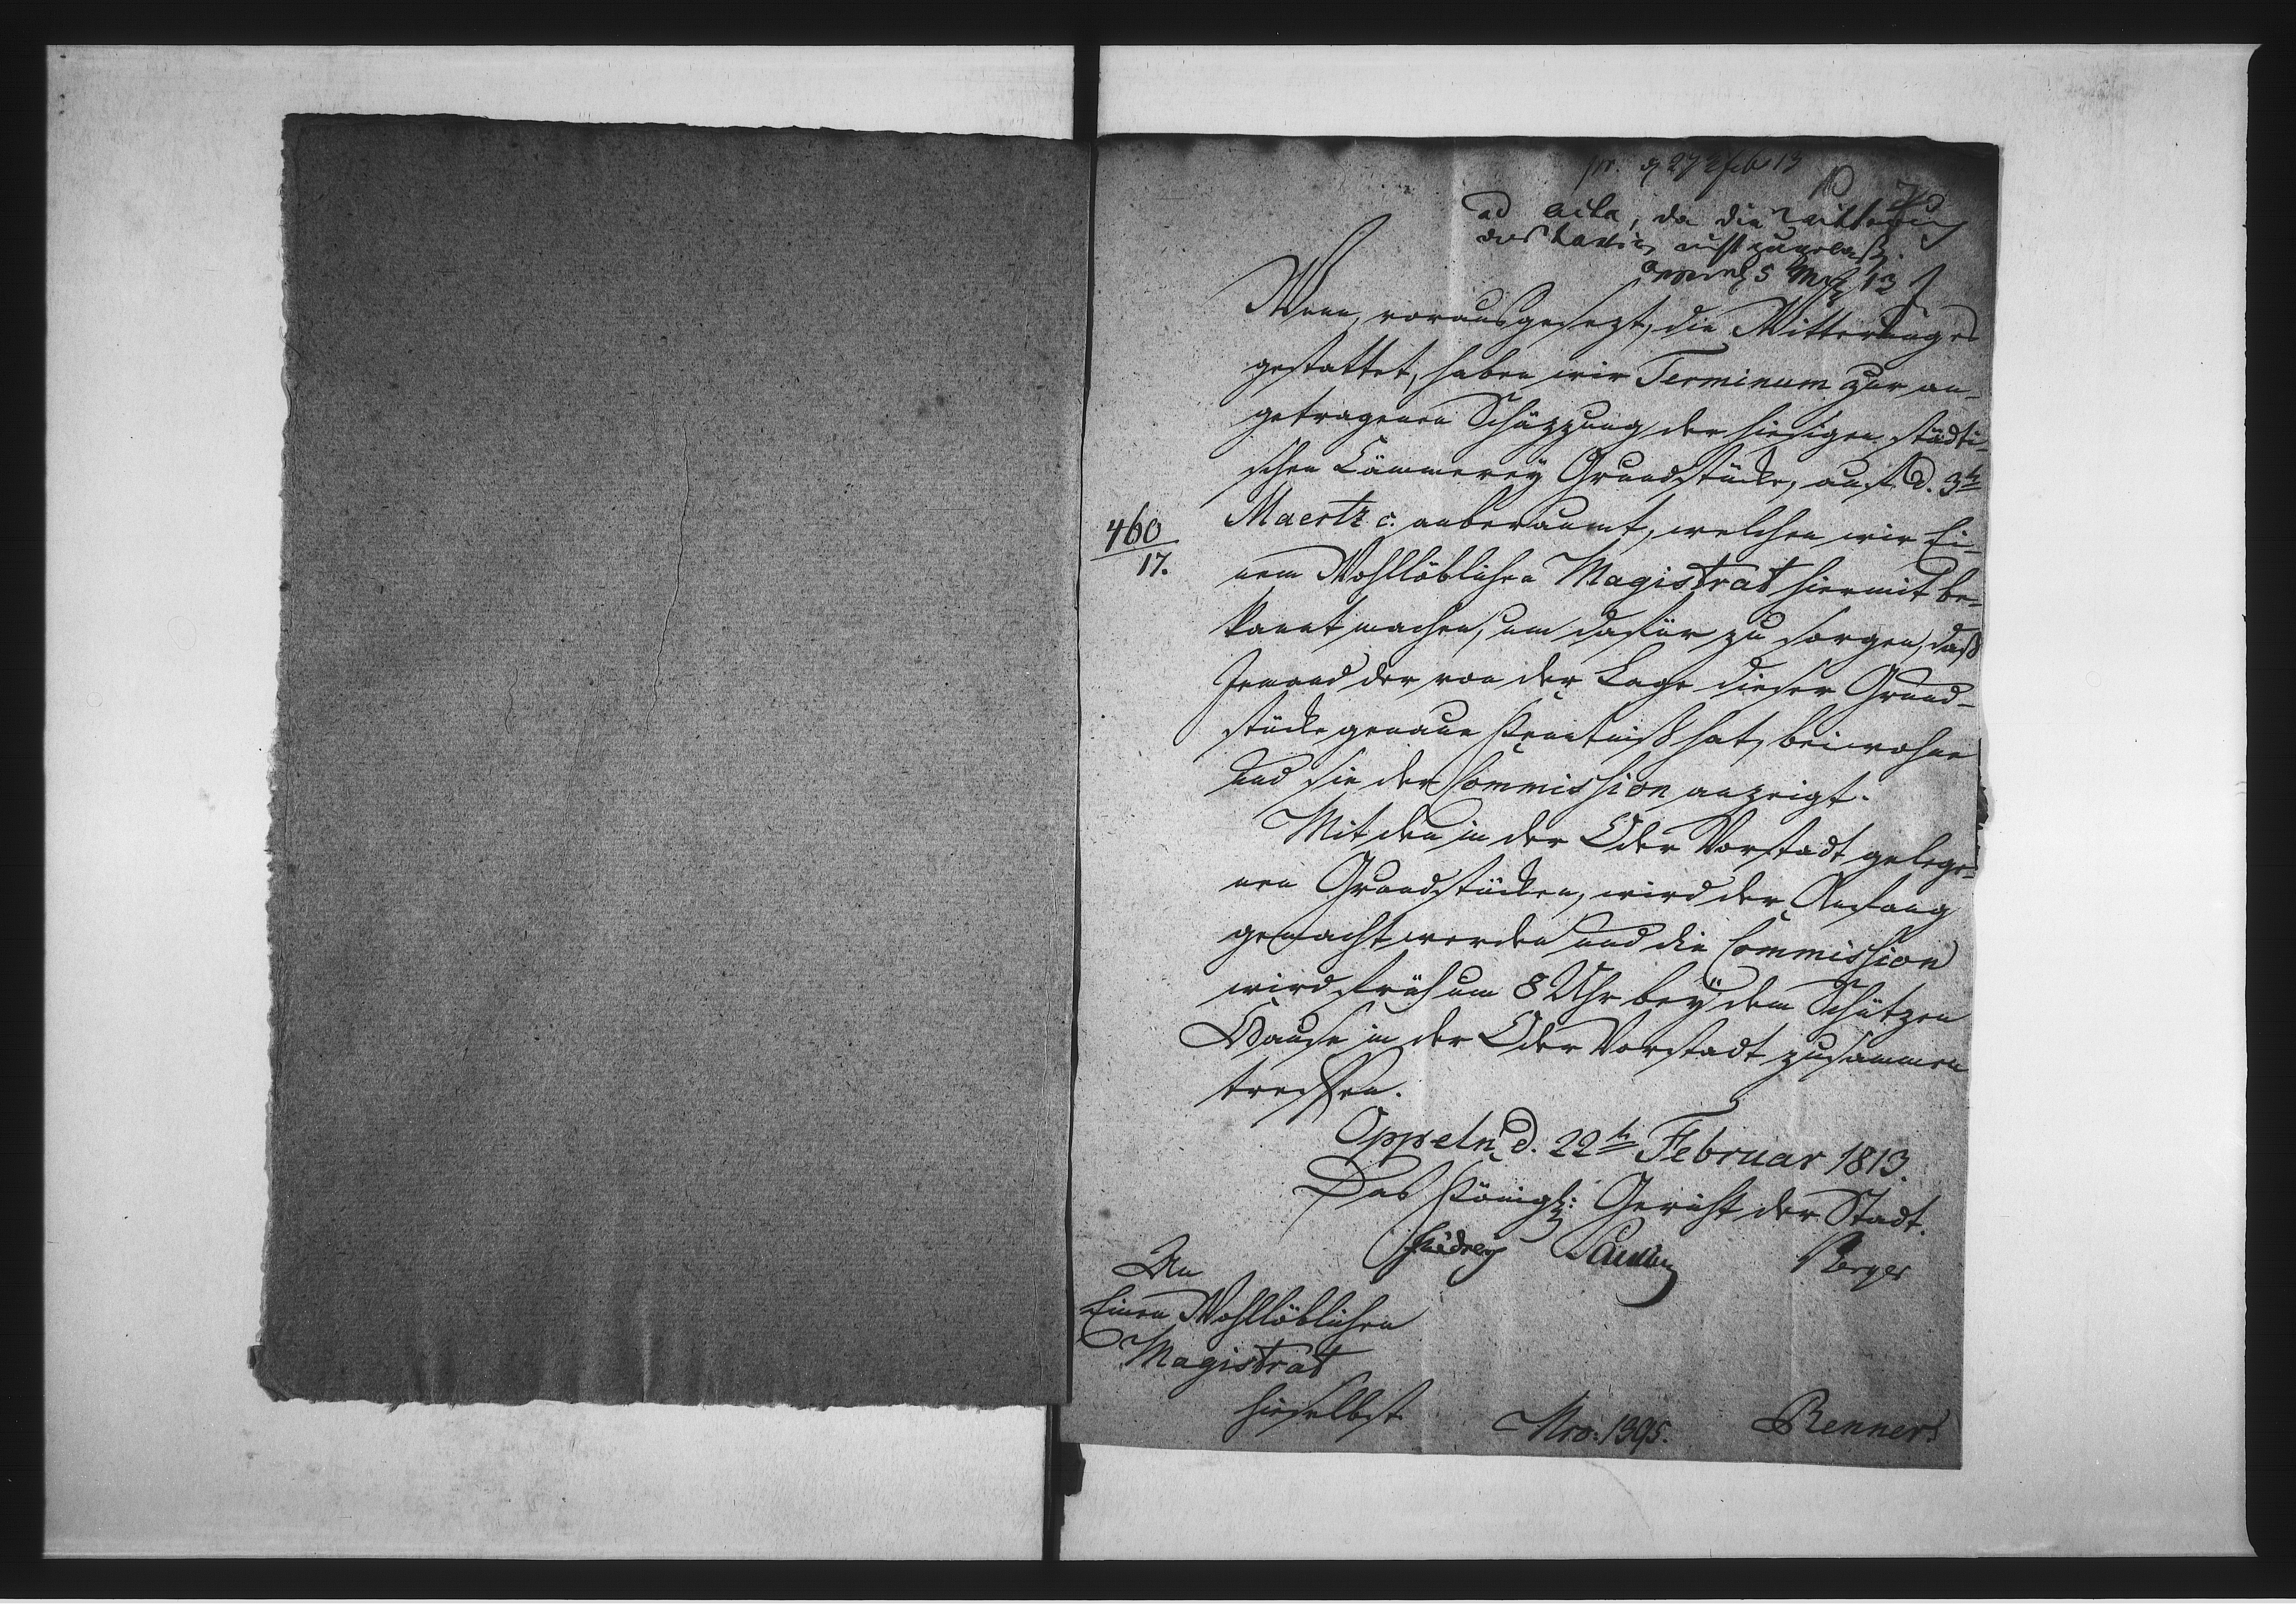 pr. d 27 Feb 13
ad acta, da die Witterung
nicht zugelassen
Oppeln 5 Mrz 13
Wenn, vorausgesezt, die Witterung es
gestattet, haben wir Terminum zur an-
getragenen Schäzzung der hiesigen städti-
schen Cämmerey Grundstücke, auf d. 3t
Maertz c. anberaumt, welchen wir Ei-
460
17.
nem Wohllöblichen Magistrat hiermit be-
kannt machen, um dafür zu sorgen, daß
Jemand der von der Lage dieser Grund-
stücke genaue Kenntniß hat, beiwohne
und sie der Commission anzeigt.
Mit den in der Oder Vorstadt gelege-
nen Grundstücken, wird der Anfang
gemacht werden und die Commission
wird früh um 8 Uhr bey dem Schützen
Hause in der Oder Vorstadt zusammen
treffen.
Oppeln d. 22t Februar 1813.
Das Königl: Gericht der Stadt.
Berger
An
Einen Wohllöblichen
Magistrat
hieselbst
Nro: 1395.
Renner